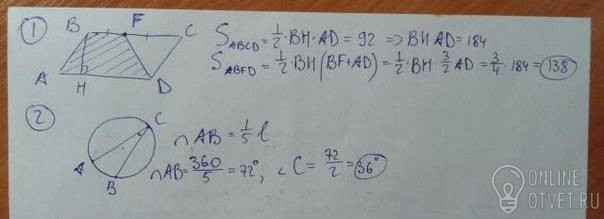 1
B F C
A H D
S ABCD = 1/2 · BH · AD = 92 => BH AD = 184
S ABFD = 1/2 · BH (BF + AD) = 1/2 · BH 3/2 AD = 3/4 · 184 = 138
2
C
A
B
∩ AB = 1/5 l
∩ AB = 360/5 = 72°, < C = 72/2 = 36°
ONLINE
OTVET.RU